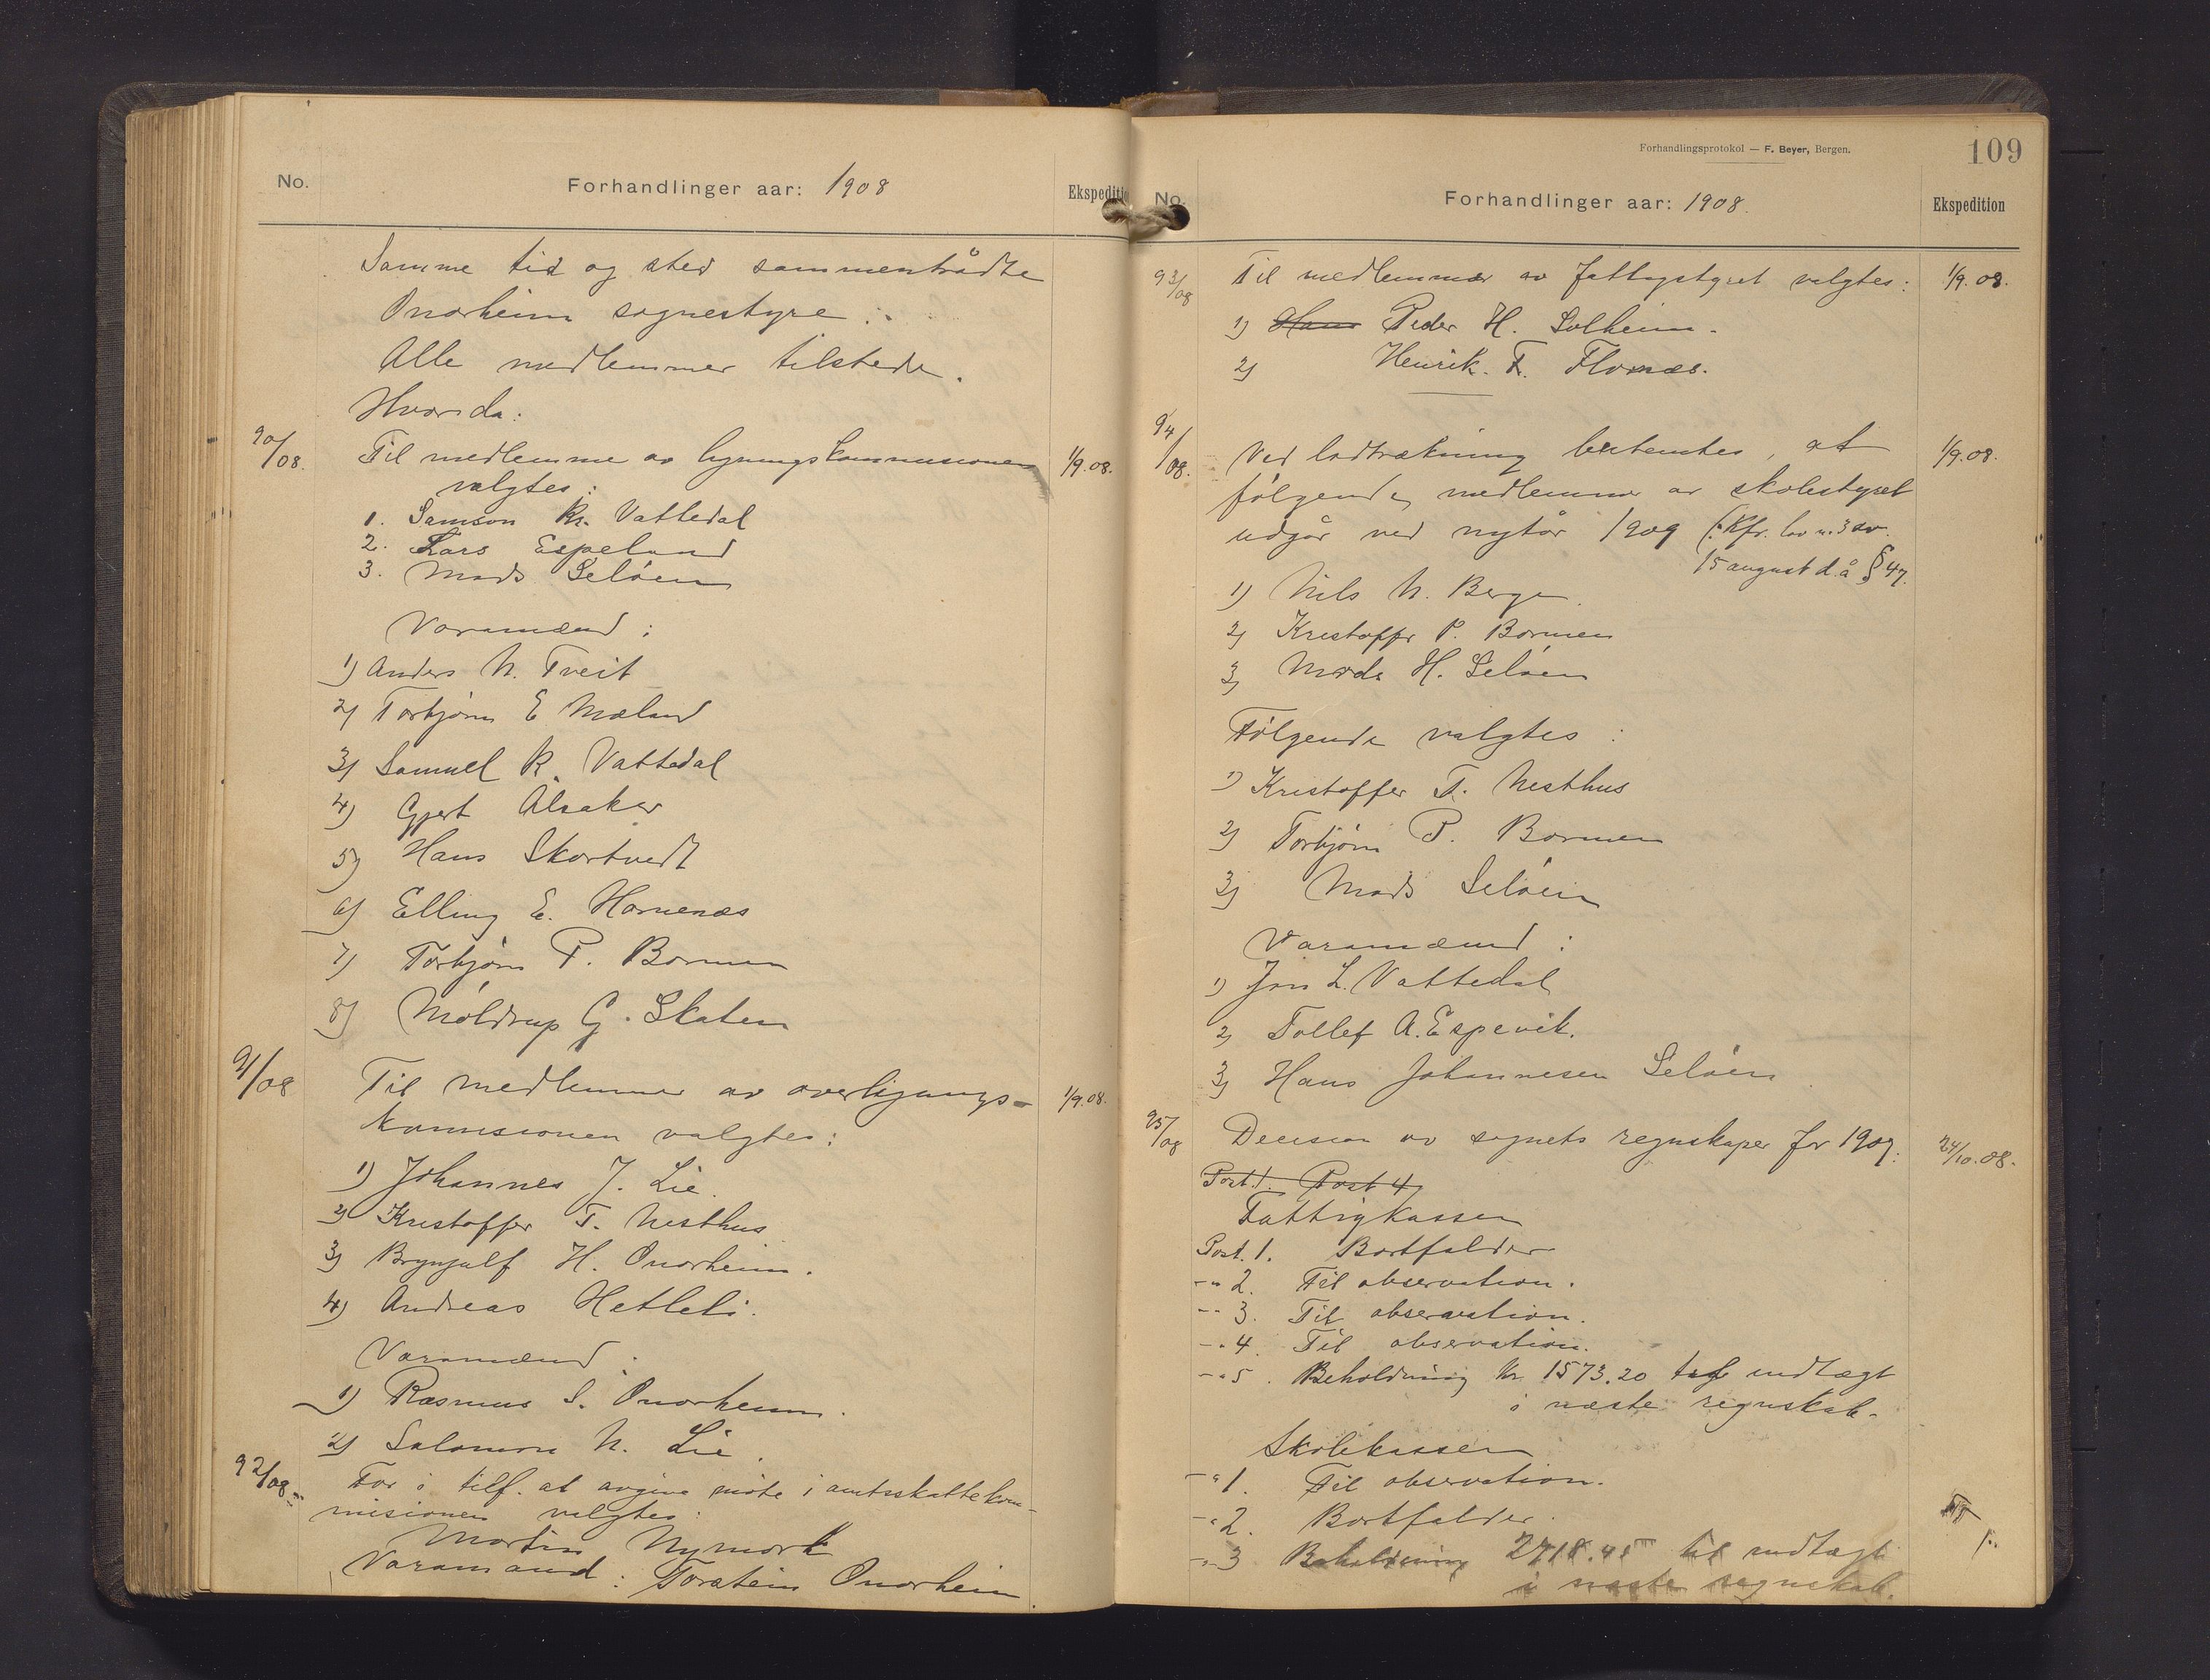 No.
Forhandlinger aar: 1908
Ekspeditio
Samme tid og sted sammentrådte
Onarheim sognestyre :
Alle medlemmer tilstede.
Hvorda:
90/08.
Til medlemme av ligningskommisionen
1/9.08.
valgtes:
1. Samson Kr. Vattedal
2. Lars Espeland
3. Mads Seløen
Varamænd :
1) Anders N. Tveit
2) Torbjørn E Mæland
3) Samuel K. Vattedal
4) Gjert Alsaker
5) Hans Skortvedt
6) Elling E. Hornenæs
7) Torbjørn P. Bormen
8) Møldrup G. Skaten
91/08
Til medlemmer av overligungs-
1/9.08.
kommisionen valgtes:
1) Johannes J. Lie.
2) Kristoffer T. Nesthus
3) Brynjulf H. Onarheim.
4) Andreas Hetleli.
Varamænd :
1) Rasmus S. Onarheim.
2) Salomon N. Lie.
92/08.
For i tilf. at avgive møte i amtsskattekom-
misionen valgtes:
Martin Nymark
Varamand : Torstein Onarheim
Forhandlingsprotokol — F. Beyer, Bergen.
109
No.
Forhandlinger aar: 1908.
Ekspedition
93/08
Til medlemmer av fattigstyret valgtes:
1/9.08.
1) Hans Peder H. Solheim.
2) Henrik. T. Flornæs.
94/08.
Ved lodtrækning bestemtes, at
1/9.08.
følgende medlemmer av skolestyret
udgår ved nytår 1909 (: Kfr. lov n. 3 av
15 august d. å § 47.
1) Nils N. Berge.
2) Kristoffer P. Bormen
3) Mads H. Seløen
Følgende valgtes :
1) Kristoffer T. Nesthus
2) Torbjørn P. Bormen
3) Mads Seløen
Varamænd :
1) Jon L. Vattedal
2) Tollef A. Espevik.
3) Hans Johannesen Seløen
95/08
Decision av sognets regnskaper for 1907:
24/10.08.
Post. 1. Post 4
Fattigkassen
Post. 1. Bortfalder
-"- 2. Til observation.
-"- 3. Til observation.
-"- 4. Til observation.
-"- 5. Beholdning kr. 1573.20 til indtægt
i næste regnskab.
Skolekassen
-"- 1. Til observation.
-"- 2. Bortfalder.
-"- 3 Beholdning 2718.45 til indtægt
i næste regnskab.